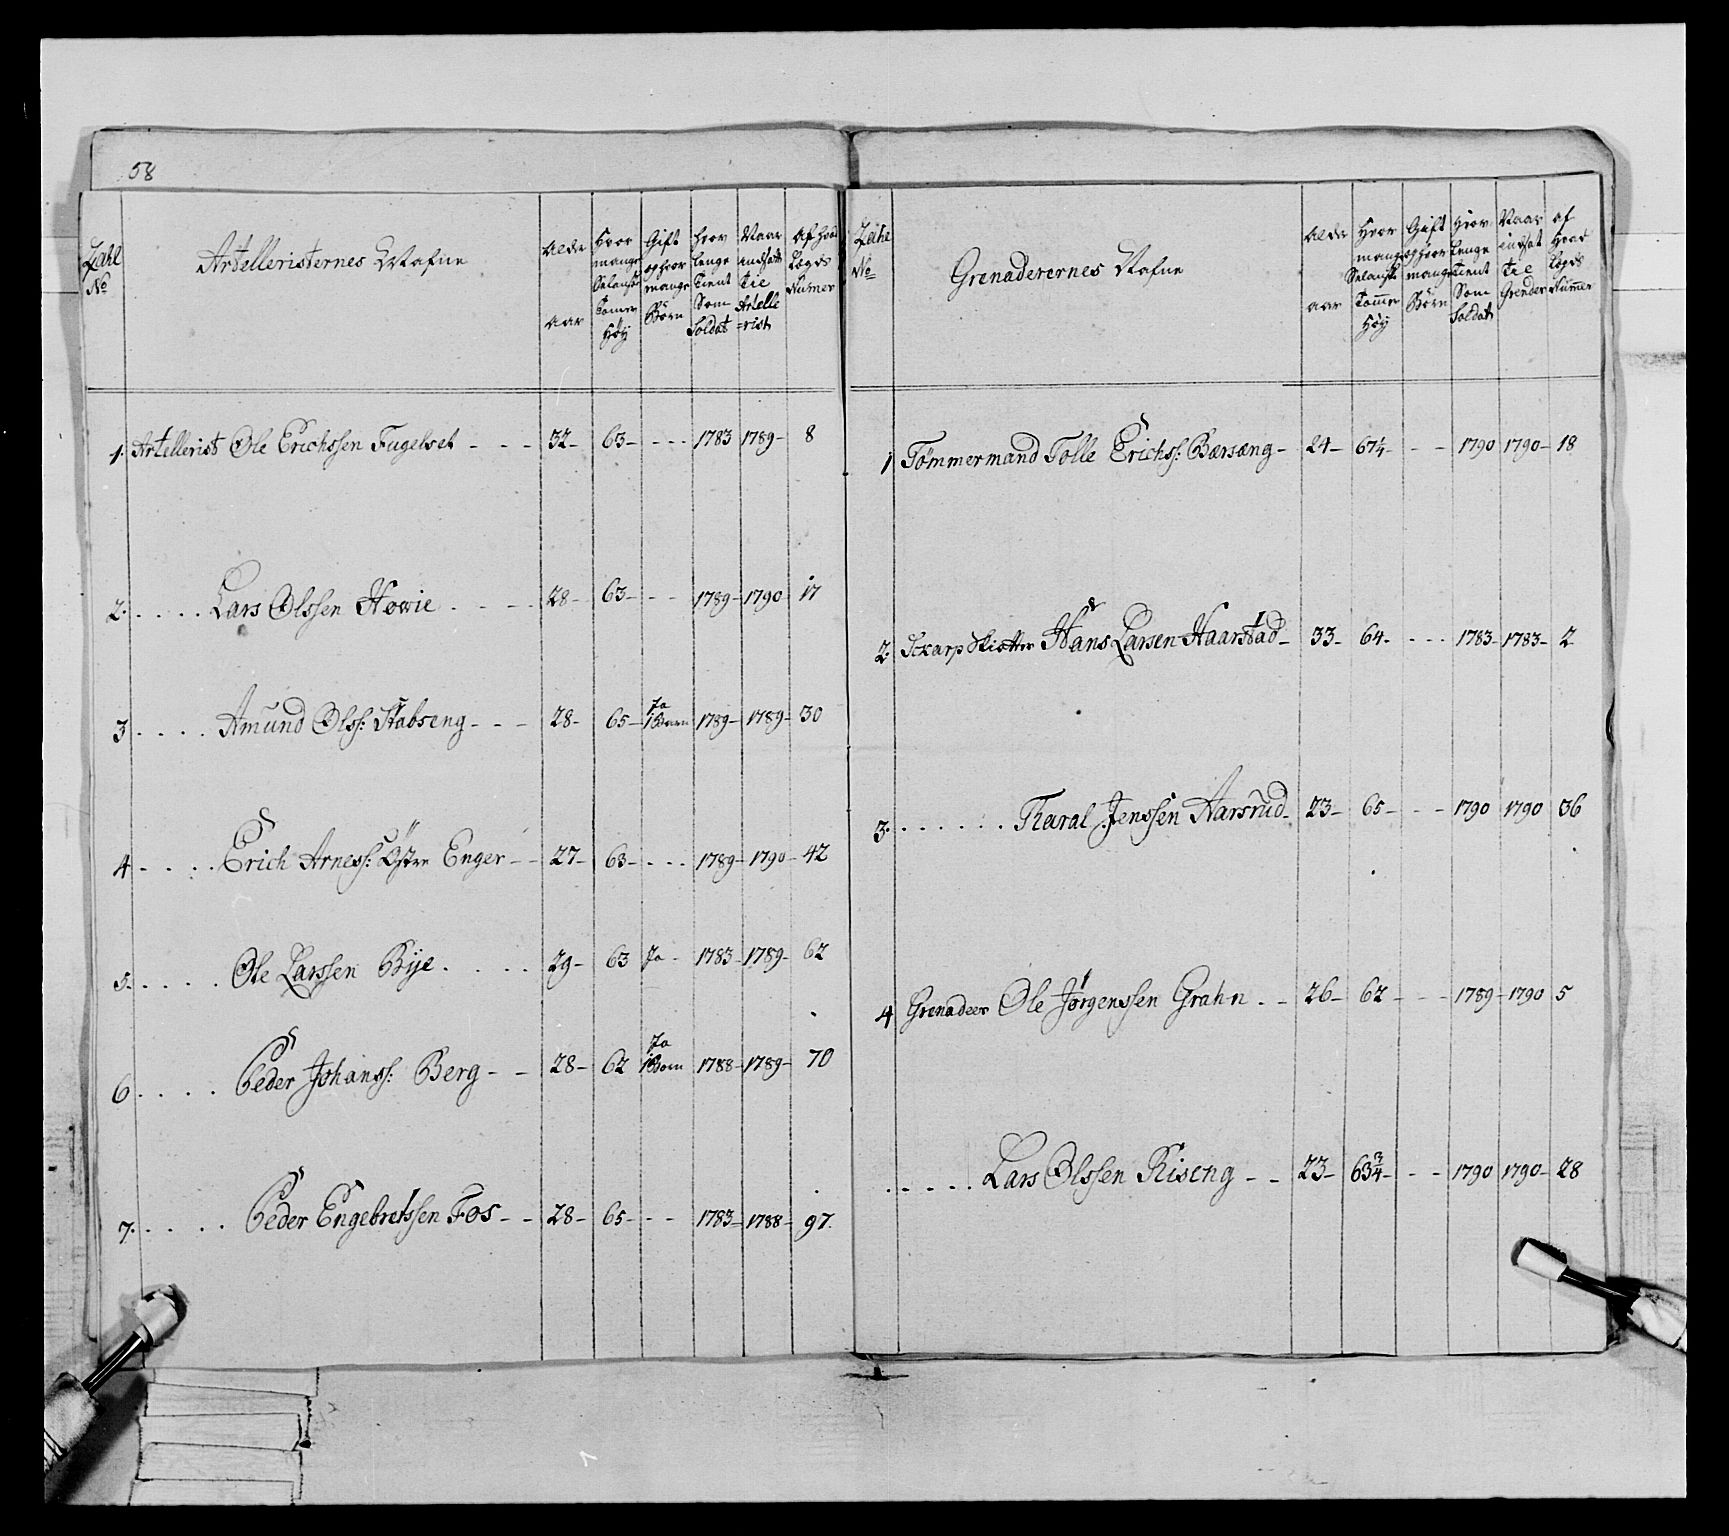 58
Zahl No
Artelleristernes Nafne
Alder Aar
Hvor mange Selansk Tomer Høy
Gift og hvor mange Børn
hvor lenge tient Som Soldat
Naar indsatt tie Artelle=rist
Af hvad Legds Numer
1. Artellerist Ole Erichssen Fugelset - - - 32- 63- - - - 1783 1789- 8
2. . . . . Lars Olssen Howie . . . . 28- 63- - - 1789- 1790 17
3 . . . . Amund Olss: Stabseng - - - 28- 65- Ja 1 Barn 1789- 1789- 30
4 - . . . Erich Arness: Østre Enger - - 27- 63- - - - 1789- 1790- 42
5. . . . . Ole Larssen Bije . . . . 29- 63 Ja - 1783- 1789- 62
6 . . . . Peder Johanss: Berg - - 28- 62 Ja 1 Barn 1788- 1789- 70
7. . . . . Peder Engebretssen Fos - - 28- 65- - - 1783- 1788- 97.
Zahl No
Grenaderernes Nafne
Alder aar
Hvor mange Selansk Tommer Høy
Gift og hvor mange Børn
Hvor lenge tient Som Soldat
Naar indsat tie Grenader
af Hvad Legds Nummer
1 Tömmermand Tolle Erichss: Bærsæng - 24- 67¼- - - 1790 1790- 18
2. Sckarp Skiøtter Hans Larsen Haarstad- 33- 64- - - - 1783- 1783- 2
3. . . . . . . Taral Jenssen Aarsrud- 23- 65- - - 1790 1790 36
4 Grenadeer Ole Jørgenssen Grahn . - 26- 62 - - - 1789- 1790 5
. . . . . Lars Olssen Riseng - - 23- 63¾- - - 1790 1790- 28